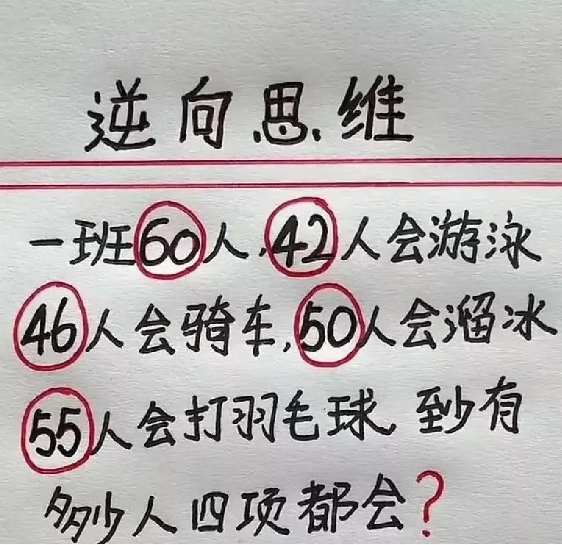 逆向思维
一班60人,42人会游泳
46人会骑车,50人会溜冰
55人会打羽毛球 至少有
多少人四项都会?